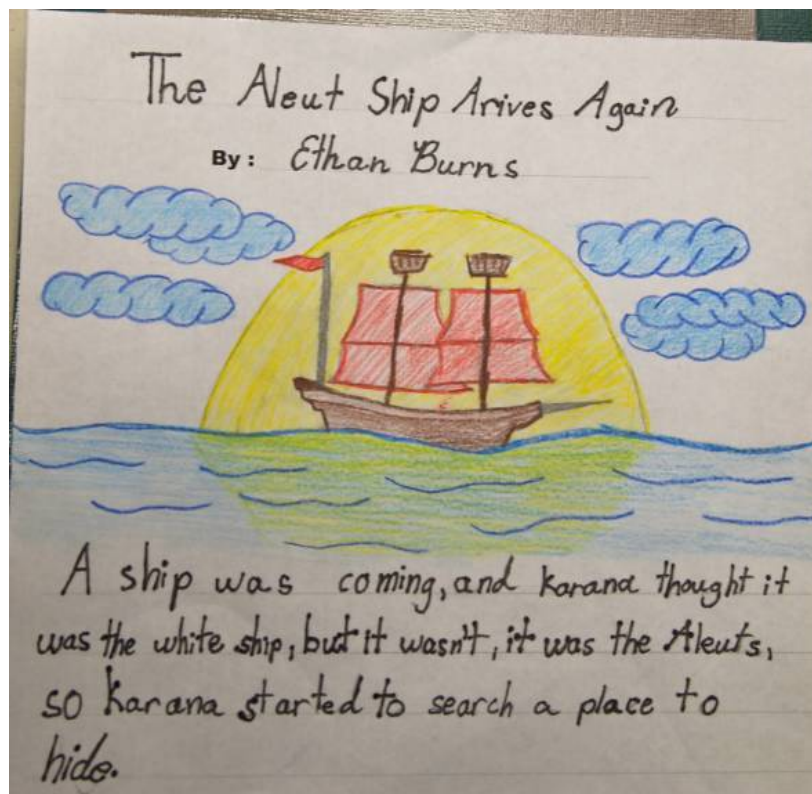 The Aleut Ship Arives Again
By: Ethan Burns
A ship was coming, and karana thought it
was the white ship, but it wasn't, it was the Aleuts,
so karana started to search a place to
hide.